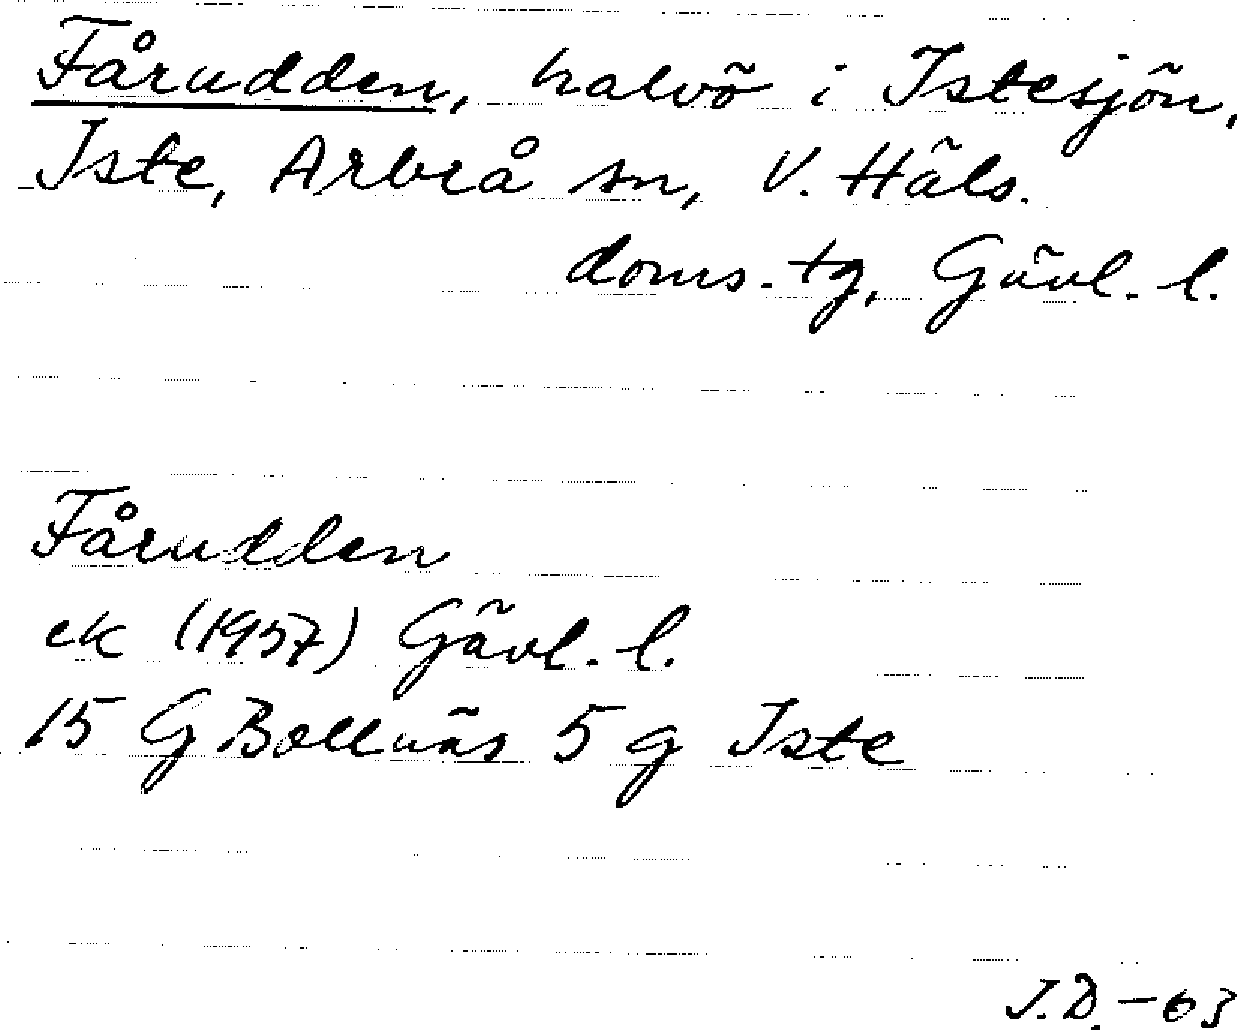 Fårudden, halvö i Istesjön,
Iste, Arbrå sn, V. Häls.
doms. tg, Gävl. l.
Fårudden
ek (1957) Gävl. l.
15 G Bollnäs 5 g Iste
J.D. - 63